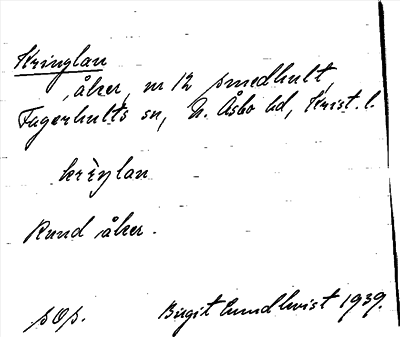 Kringlan
åker, nr 12 Smedhult,
Fagerhults sn, N. Åsbo hd, Krist. l.
kriŋlan
Rund åker.
pOp. Birgit Lundkvist 1939.